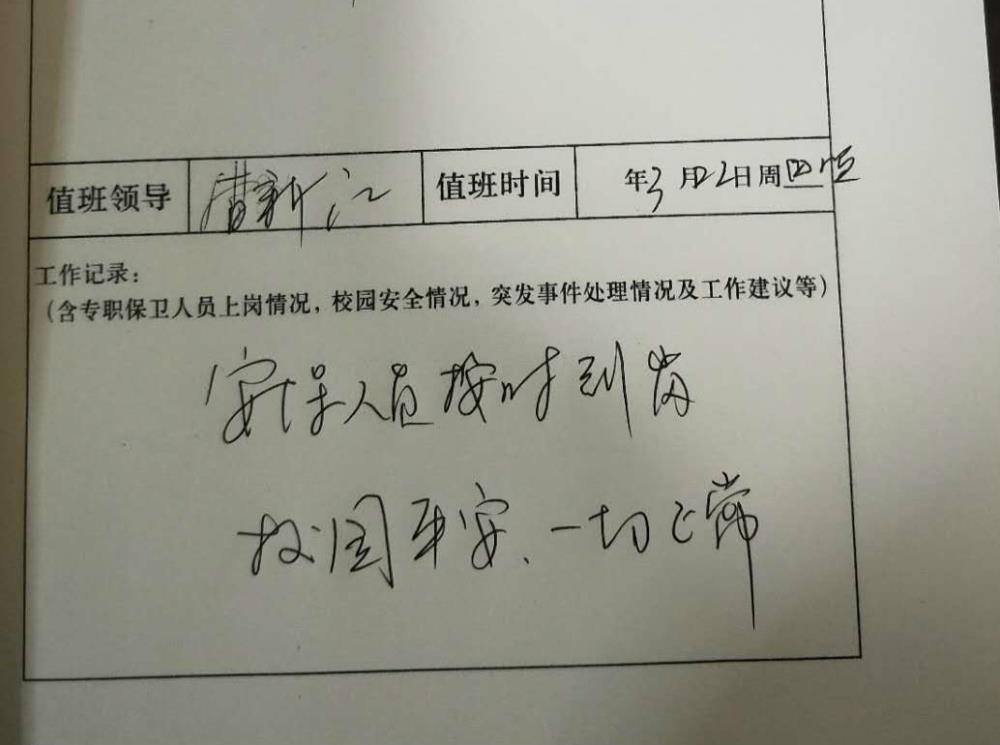 值班领导 曹新江 值班时间 年3月22日周四
工作记录：
（含专职保卫人员上岗情况，校园安全情况，突发事件处理情况及工作建议等）
安保人员按时到岗
校园平安、一切正常